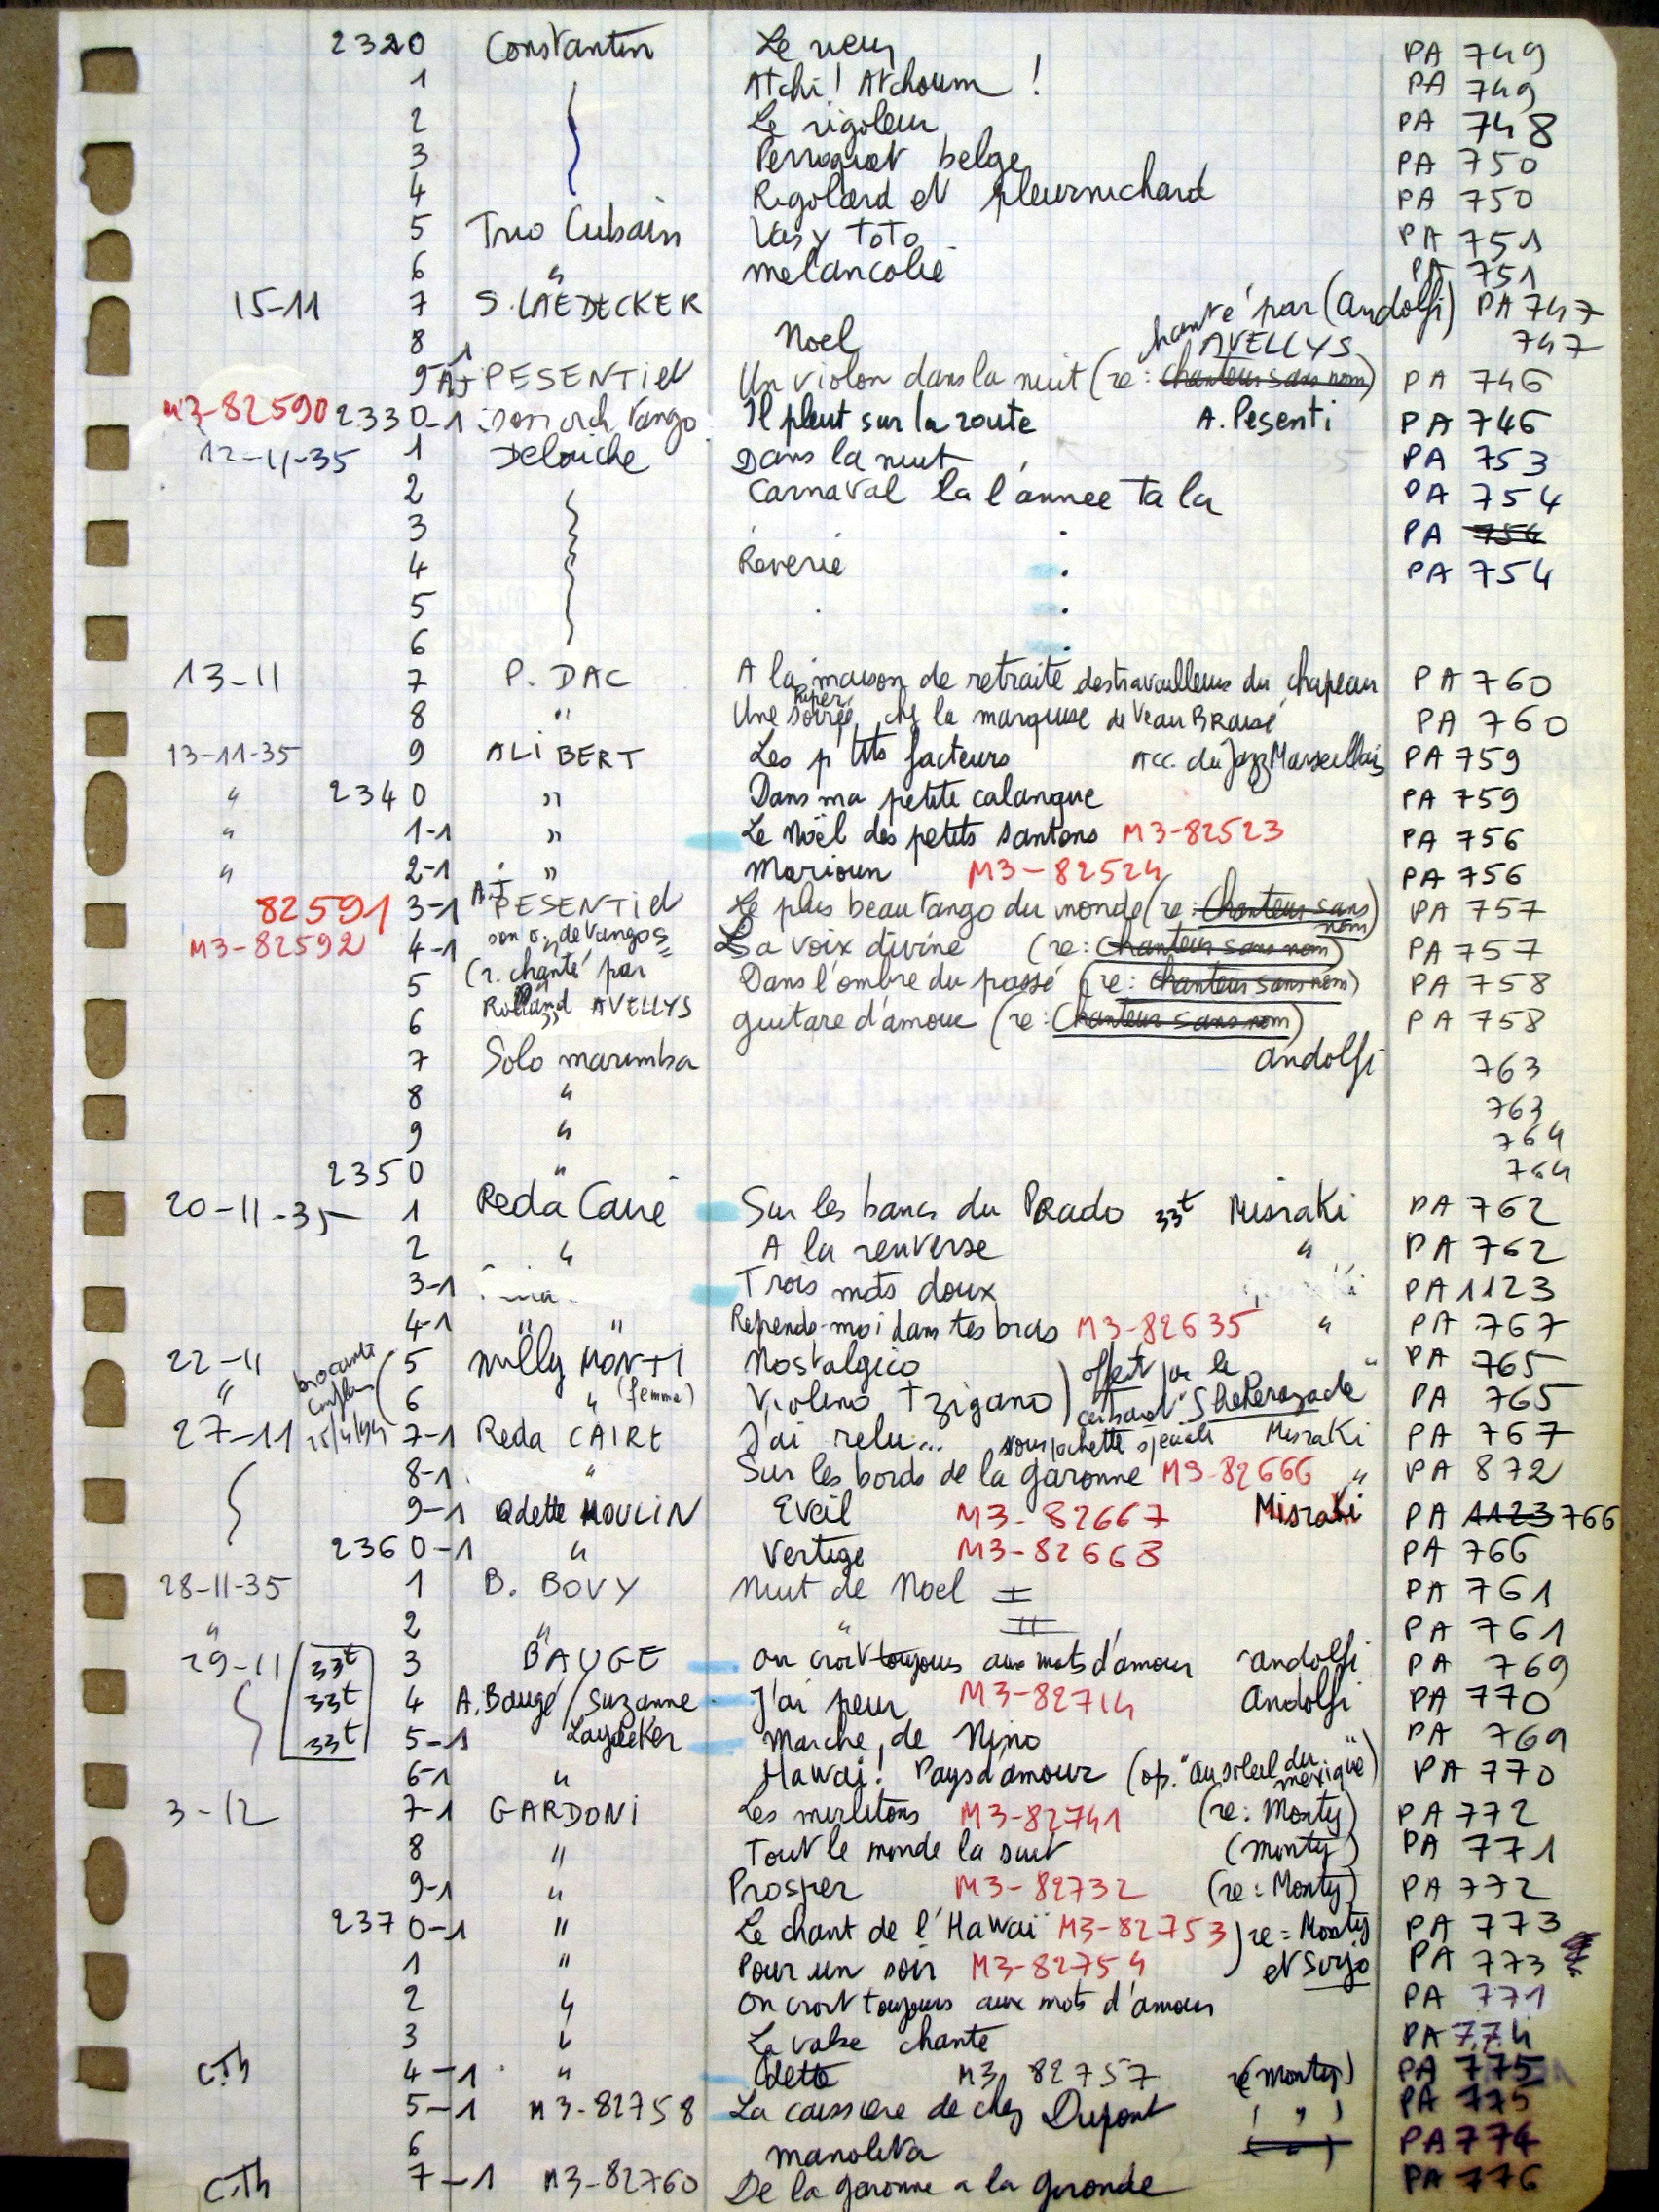 2320 Constantin Le vieux PA 749
1 Atchi! Atchoum! PA 749
2 Le rigoleur PA 748
3 Perroquet belge PA 750
4 Rigolard et pleurnichard PA 750
5 Trio Cubain Vas y Toto PA 751
6 " melancolie PA 751
15-11 7 S. LAEDECKER chanté par (Andolfi) PA 747
8 Noel AVELLYS 747
9-1 A+J PESENTI et Un violon dans la nuit (re: chanteur sans nom) PA 746
M3-82590 2330-1 son orch tango Il pleut sur la route A. Pesenti PA 746
12-11-35 1 Delouche Dans la nuit PA 753
2 Carnaval la l'annee ta la PA 754
3 PA 754
4 Reverie PA 754
5
6
13-11 7 P. DAC A la maison de retraite des travailleurs du chapeau PA 760
8 " Une soirée chez la marquise de Veau BRAISÉ PA 760
13-11-35 9 ALIBERT Les p'tits facteurs Acc. du Jazz Marseillais PA 759
" 2340 " Dans ma petite calanque PA 759
" 1-1 " Le Noël des petits santons M3-82523 PA 756
" 2-1 " Marioun M3-82524 PA 756
82591 3-1 A+J PESENTI et Le plus beau tango du monde (re: Chanteur sans nom) PA 757
M3-82592 4-1 son o. de tangos La voix divine (re: chanteur sans nom) PA 757
5 (r. chanté par Dans l'ombre du passé (re: chanteur sans nom) PA 758
6 Rolland AVELLYS guitare d'amour (re: Chanteur sans nom) PA 758
7 Solo marimba andolfi 763
8 " 763
9 " 764
2350 " 764
20-11-35 1 Reda Caire Sur les bancs du PRado 33t Misraki PA 762
2 " A la renverse " PA 762
3-1 Trois mots doux PA 1123
4-1 " " Reprends-moi dans tes bras M3-82635 " PA 767
22-11 5 Milly MONTI Nostalgico ) offert par le " PA 765
" 6 " (femme) Violino Tzigano ) cabaret "Sheherazade PA 765
27-11 7-1 Reda CAIRE J'ai relu... sous pochette speciale Misraki PA 767
8-1 " Sur les bords de la garonne M3-82666 " PA 872
9-1 Odette MOULIN Eveil M3-82667 Misraki PA 1123 766
2360-1 " Vertige M3-82668 PA 766
28-11-35 1 B. BOVY Nuit de Noel I PA 761
" 2 " " II PA 761
29-11 33t 3 BAUGE On croit toujours aux mots d'amour andolfi PA 769
33t 4 A. Baugé / Suzanne J'ai peur M3-82714 Andolfi PA 770
33t 5-1 Laydeker Marche de Nino " PA 769
6-1 " Hawai! Pays d'amour (op. "au soleil du mexique) PA 770
3-12 7-1 GARDONI Les mirlitons M3-82741 (re: Monty) PA 772
8 " Tout le monde la suit (monty) PA 771
9-1 " Prosper M3-82732 (re: Monty) PA 772
2370-1 " Le chant de l'Hawaï M3-82753 ) re = Monty PA 773
1 " Pour un soir M3-82754 ) et Surjo PA 773
2 " On croit toujours aux mots d'amour PA 771
3 " La valse chante PA 774
C.Th 4-1 " Odette M3 82757 re (Monty) PA 775
5-1 M3-82758 La caissiere de chez Dupont ( " ) PA 775
6 manolita ( " ) PA 774
C.Th 7-1 M3-82760 De la garonne a la gironde PA 776